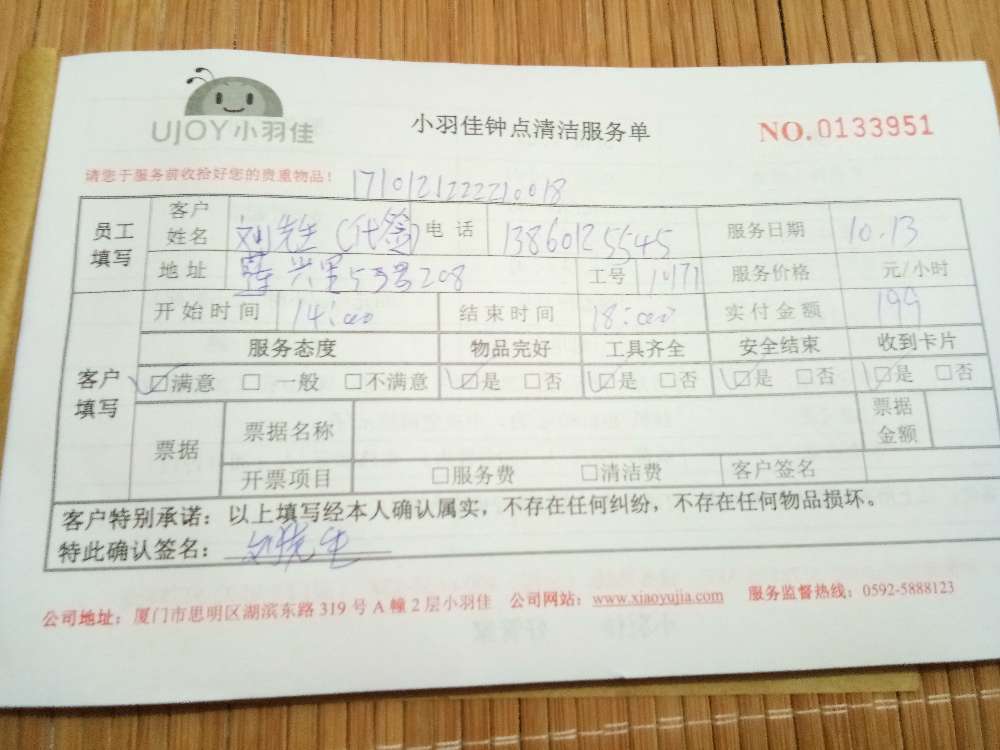 UJOY小羽佳
小羽佳钟点清洁服务单
NO.0133951
请您于服务前收拾好您的贵重物品!
1710121222210018
员工填写 客户姓名 刘先生(代签) 电话 13860125545 服务日期 10.13
地址 莲兴里53号208 工号 10171 服务价格 元/小时
客户填写 开始时间 14:00 结束时间 18:00 实付金额 199
服务态度 物品完好 工具齐全 安全结束 收到卡片
☑满意 □一般 □不满意 ☑是 □否 ☑是 □否 ☑是 □否 ☑是 □否
票据 票据名称 票据金额
开票项目 □服务费 □清洁费 客户签名
客户特别承诺:以上填写经本人确认属实,不存在任何纠纷,不存在任何物品损坏。
特此确认签名:刘先生
公司地址:厦门市思明区湖滨东路319号A幢2层小羽佳 公司网站:www.xiaoyujia.com 服务监督热线:0592-5888123